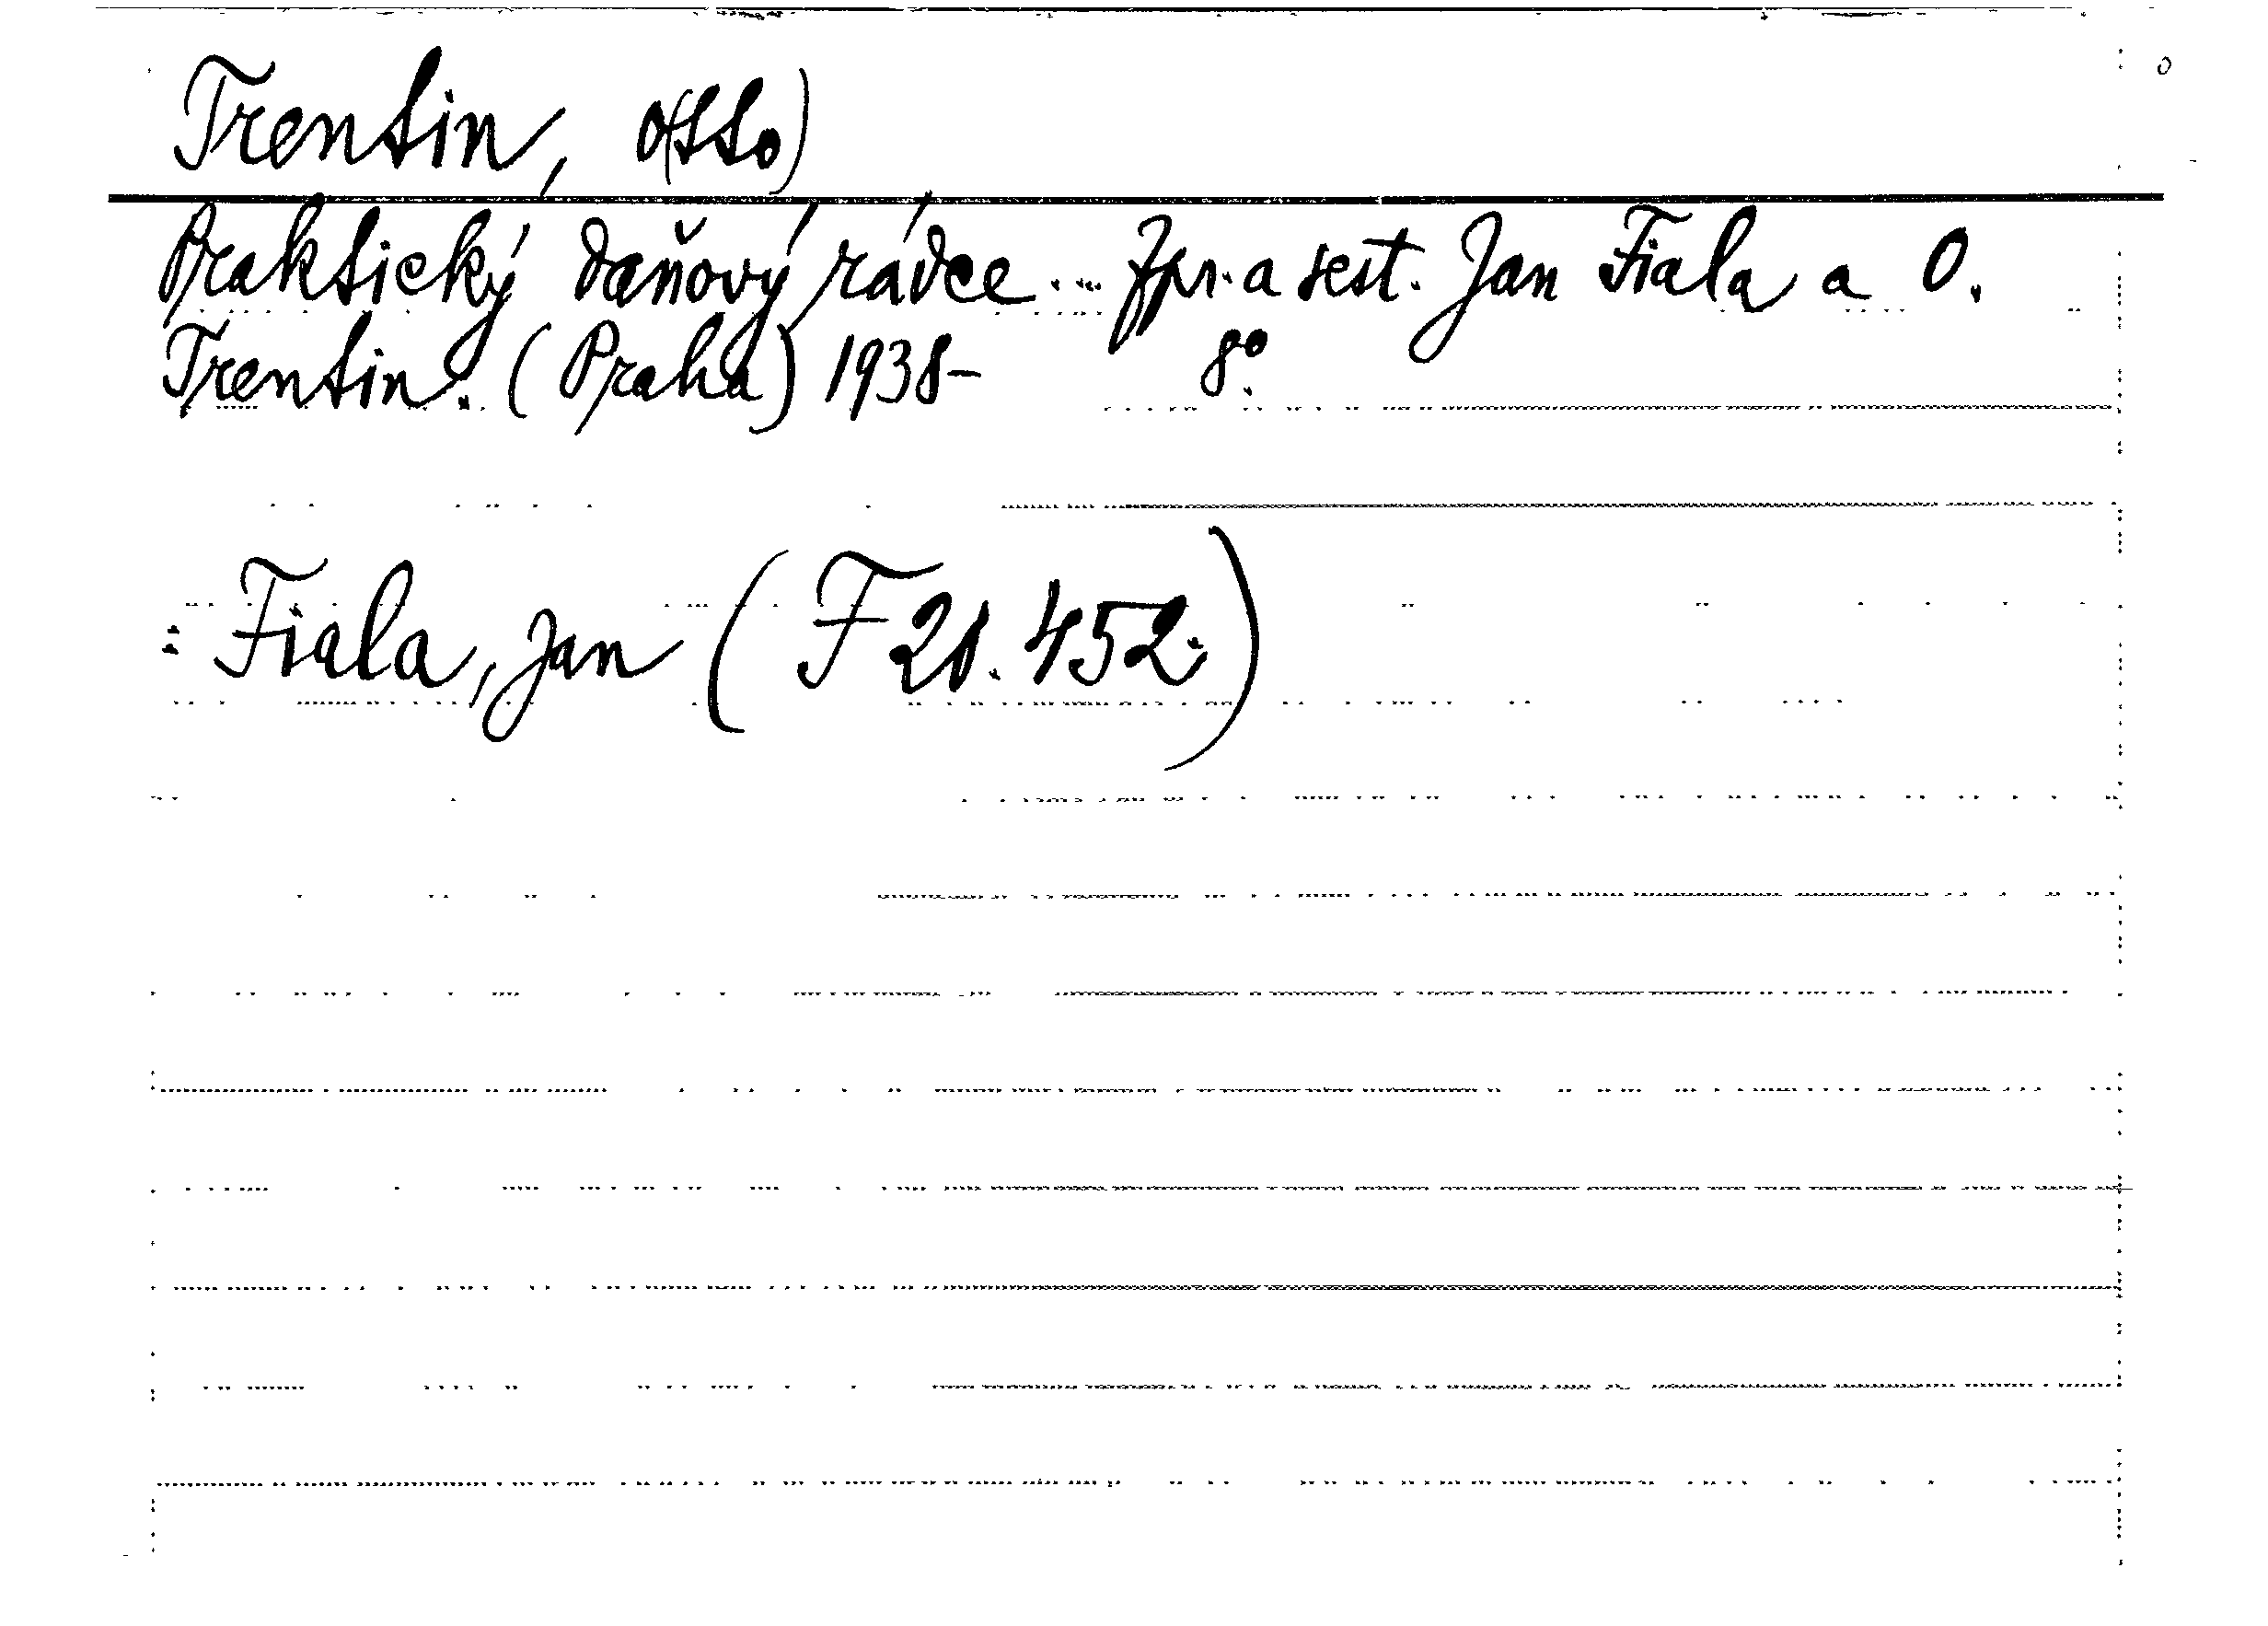 Trentin, O(tto)
Praktický daňový rádce ... Zpr. a sest. Jan Fiala a O.
Trentin. (Praha) 1938- 8°.
: Fiala, Jan (F 21.452.)